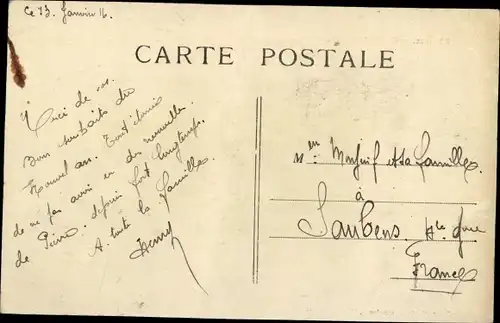 Ce 13. Janvier 16.
CARTE POSTALE
Merci de vos
Bons souhaits du
Nouvel an.
de ne pas avoir eu des nouvelles
de Pierre. depuis fort longtemps.
A toute la famille
Henry
Mr et sa famille
à
Saubens Hte Gne
France